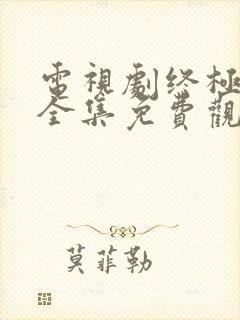 電視劇终極
全集免費觀
莫菲勒